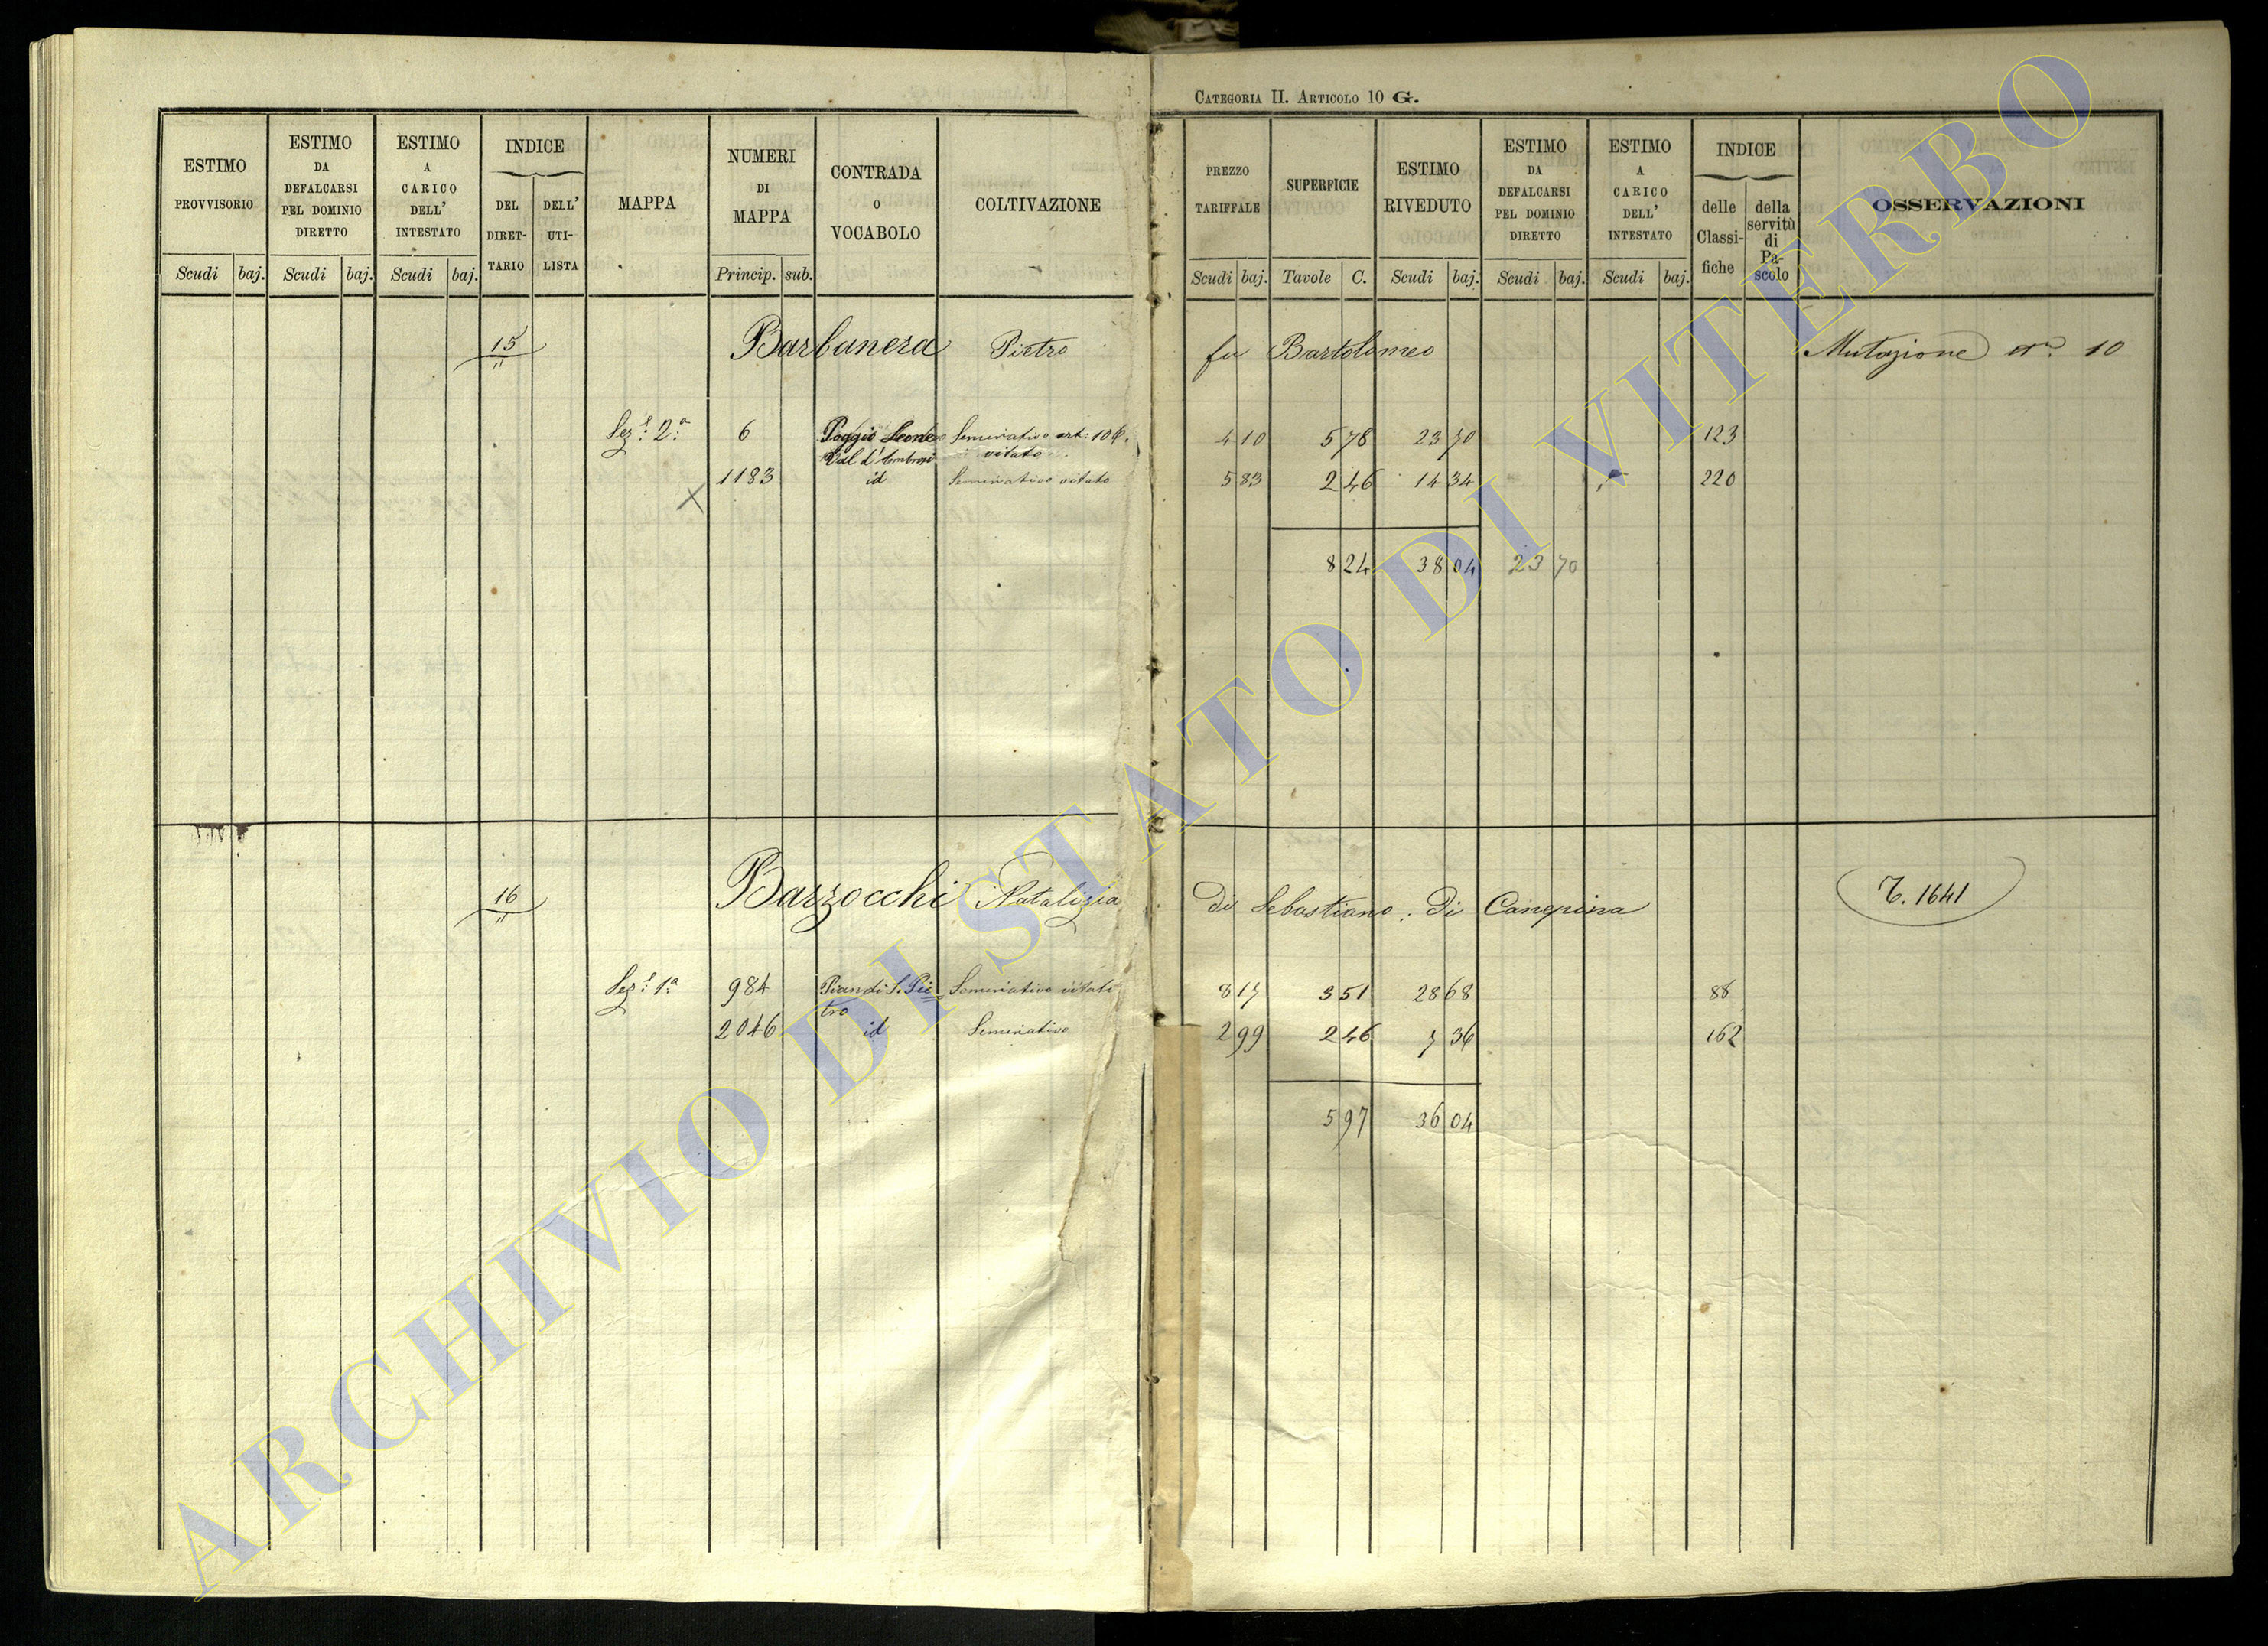 CATEGORIA II. ARTICOLO 10 G.
ESTIMO PROVVISORIO Scudi baj.
ESTIMO DA DEFALCARSI PEL DOMINIO DIRETTO Scudi baj.
ESTIMO A CARICO DELL' INTESTATO Scudi baj.
INDICE DEL DIRETTARIO DELL' UTILISTA
MAPPA
NUMERI DI MAPPA Princip. sub.
CONTRADA O VOCABOLO
COLTIVAZIONE
PREZZO TARIFFALE Scudi baj.
SUPERFICIE Tavole C.
ESTIMO RIVEDUTO Scudi baj.
ESTIMO DA DEFALCARSI PEL DOMINIO DIRETTO Scudi baj.
ESTIMO A CARICO DELL' INTESTATO Scudi baj.
INDICE delle Classifiche della servitù di Pascolo
OSSERVAZIONI
15 Barbanera Pietro fu Bartolomeo Mutazione n.° 10
Sez.e 2.a 6 Poggio Leone Seminativo art: 106. 4 10 5 78 23 70 123
Val d'Ambrosi vitato
1183 id Seminativo vitato 5 83 2 46 14 34 220
X
8 24 38 04 23 70
16 Barzocchi Natalizia di Sebastiano. di Canepina T. 1641
Sez.e 1.a 984 Pian di S. Pie= Seminativo vitato 8 17 3 51 28 68 88
tro
2046 id Seminativo 2 99 2 46 7 36 162
5 97 36 04
ARCHIVIO DI STATO DI VITERBO